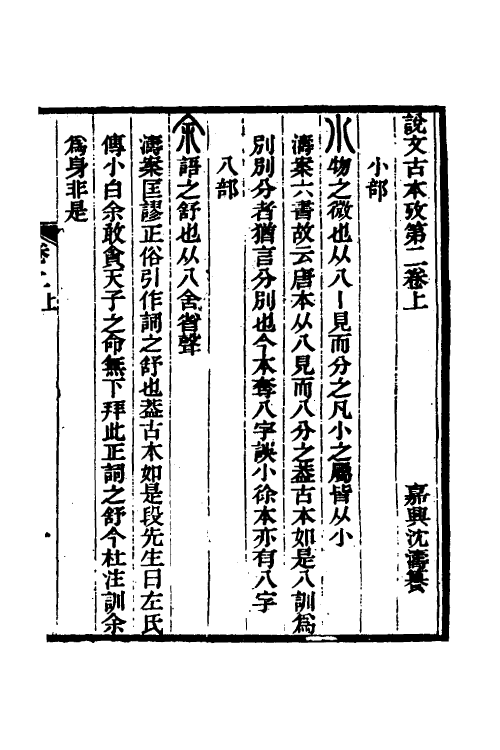 說文古本攷第二卷上
嘉興沈濤纂
小部
小物之微也从八丨見而分之凡小之屬皆从小
濤案六書故云唐本从八見而八分之葢古本如是八訓爲
別別分者猶言分別也今本奪八字誤小徐本亦有八字
八部
余語之舒也从八舍省聲
濤案匡謬正俗引作詞之舒也葢古本如是段先生曰左氏
傳小白余敢貪天子之命無下拜此正詞之舒今杜注訓余
爲身非是
卷二上